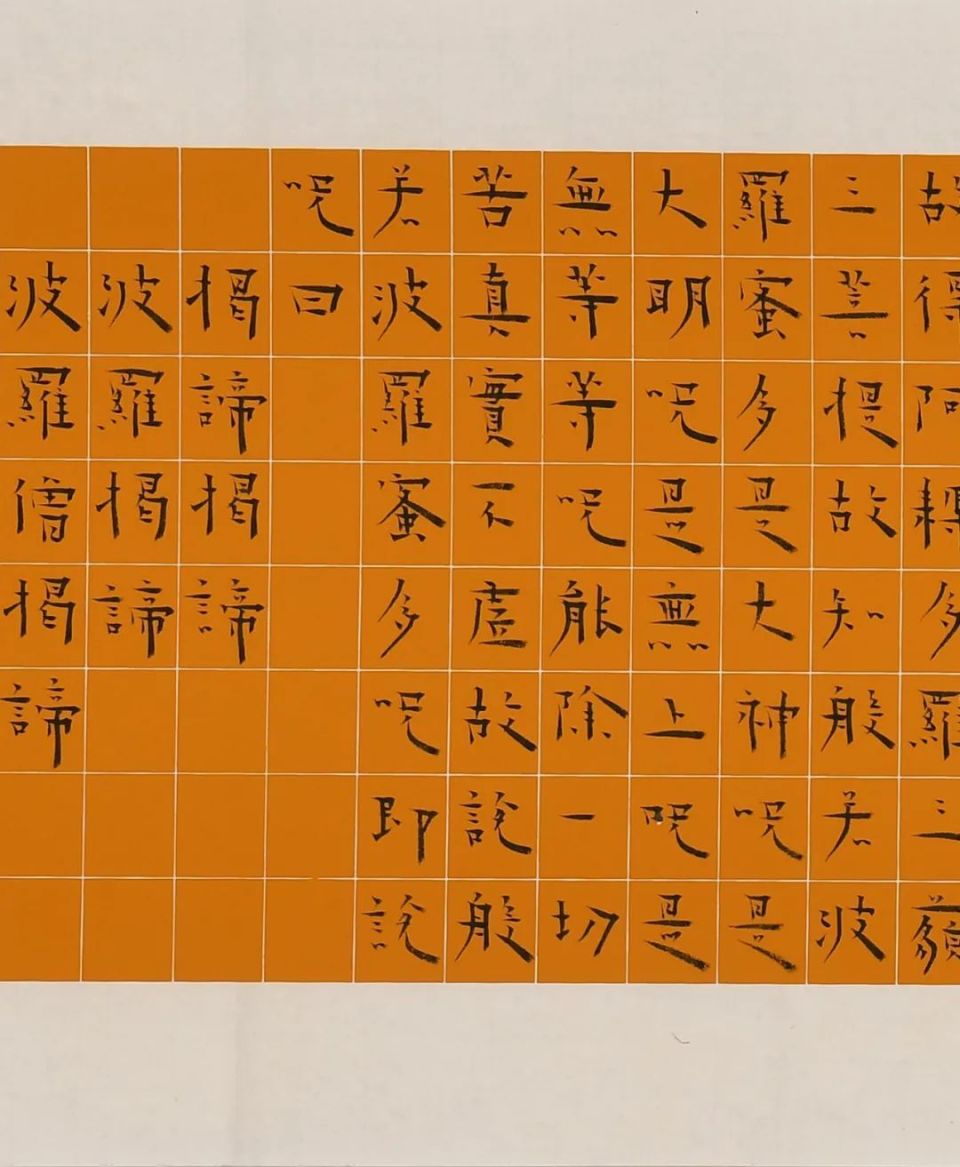 故得阿耨多羅三藐
三菩提故知般若波
羅蜜多是大神呪是
大明呪是無上呪是
無等等呪能除一切
苦真實不虛故說般
若波羅蜜多呪即說
呪曰
揭諦揭諦
波羅揭諦
波羅僧揭諦